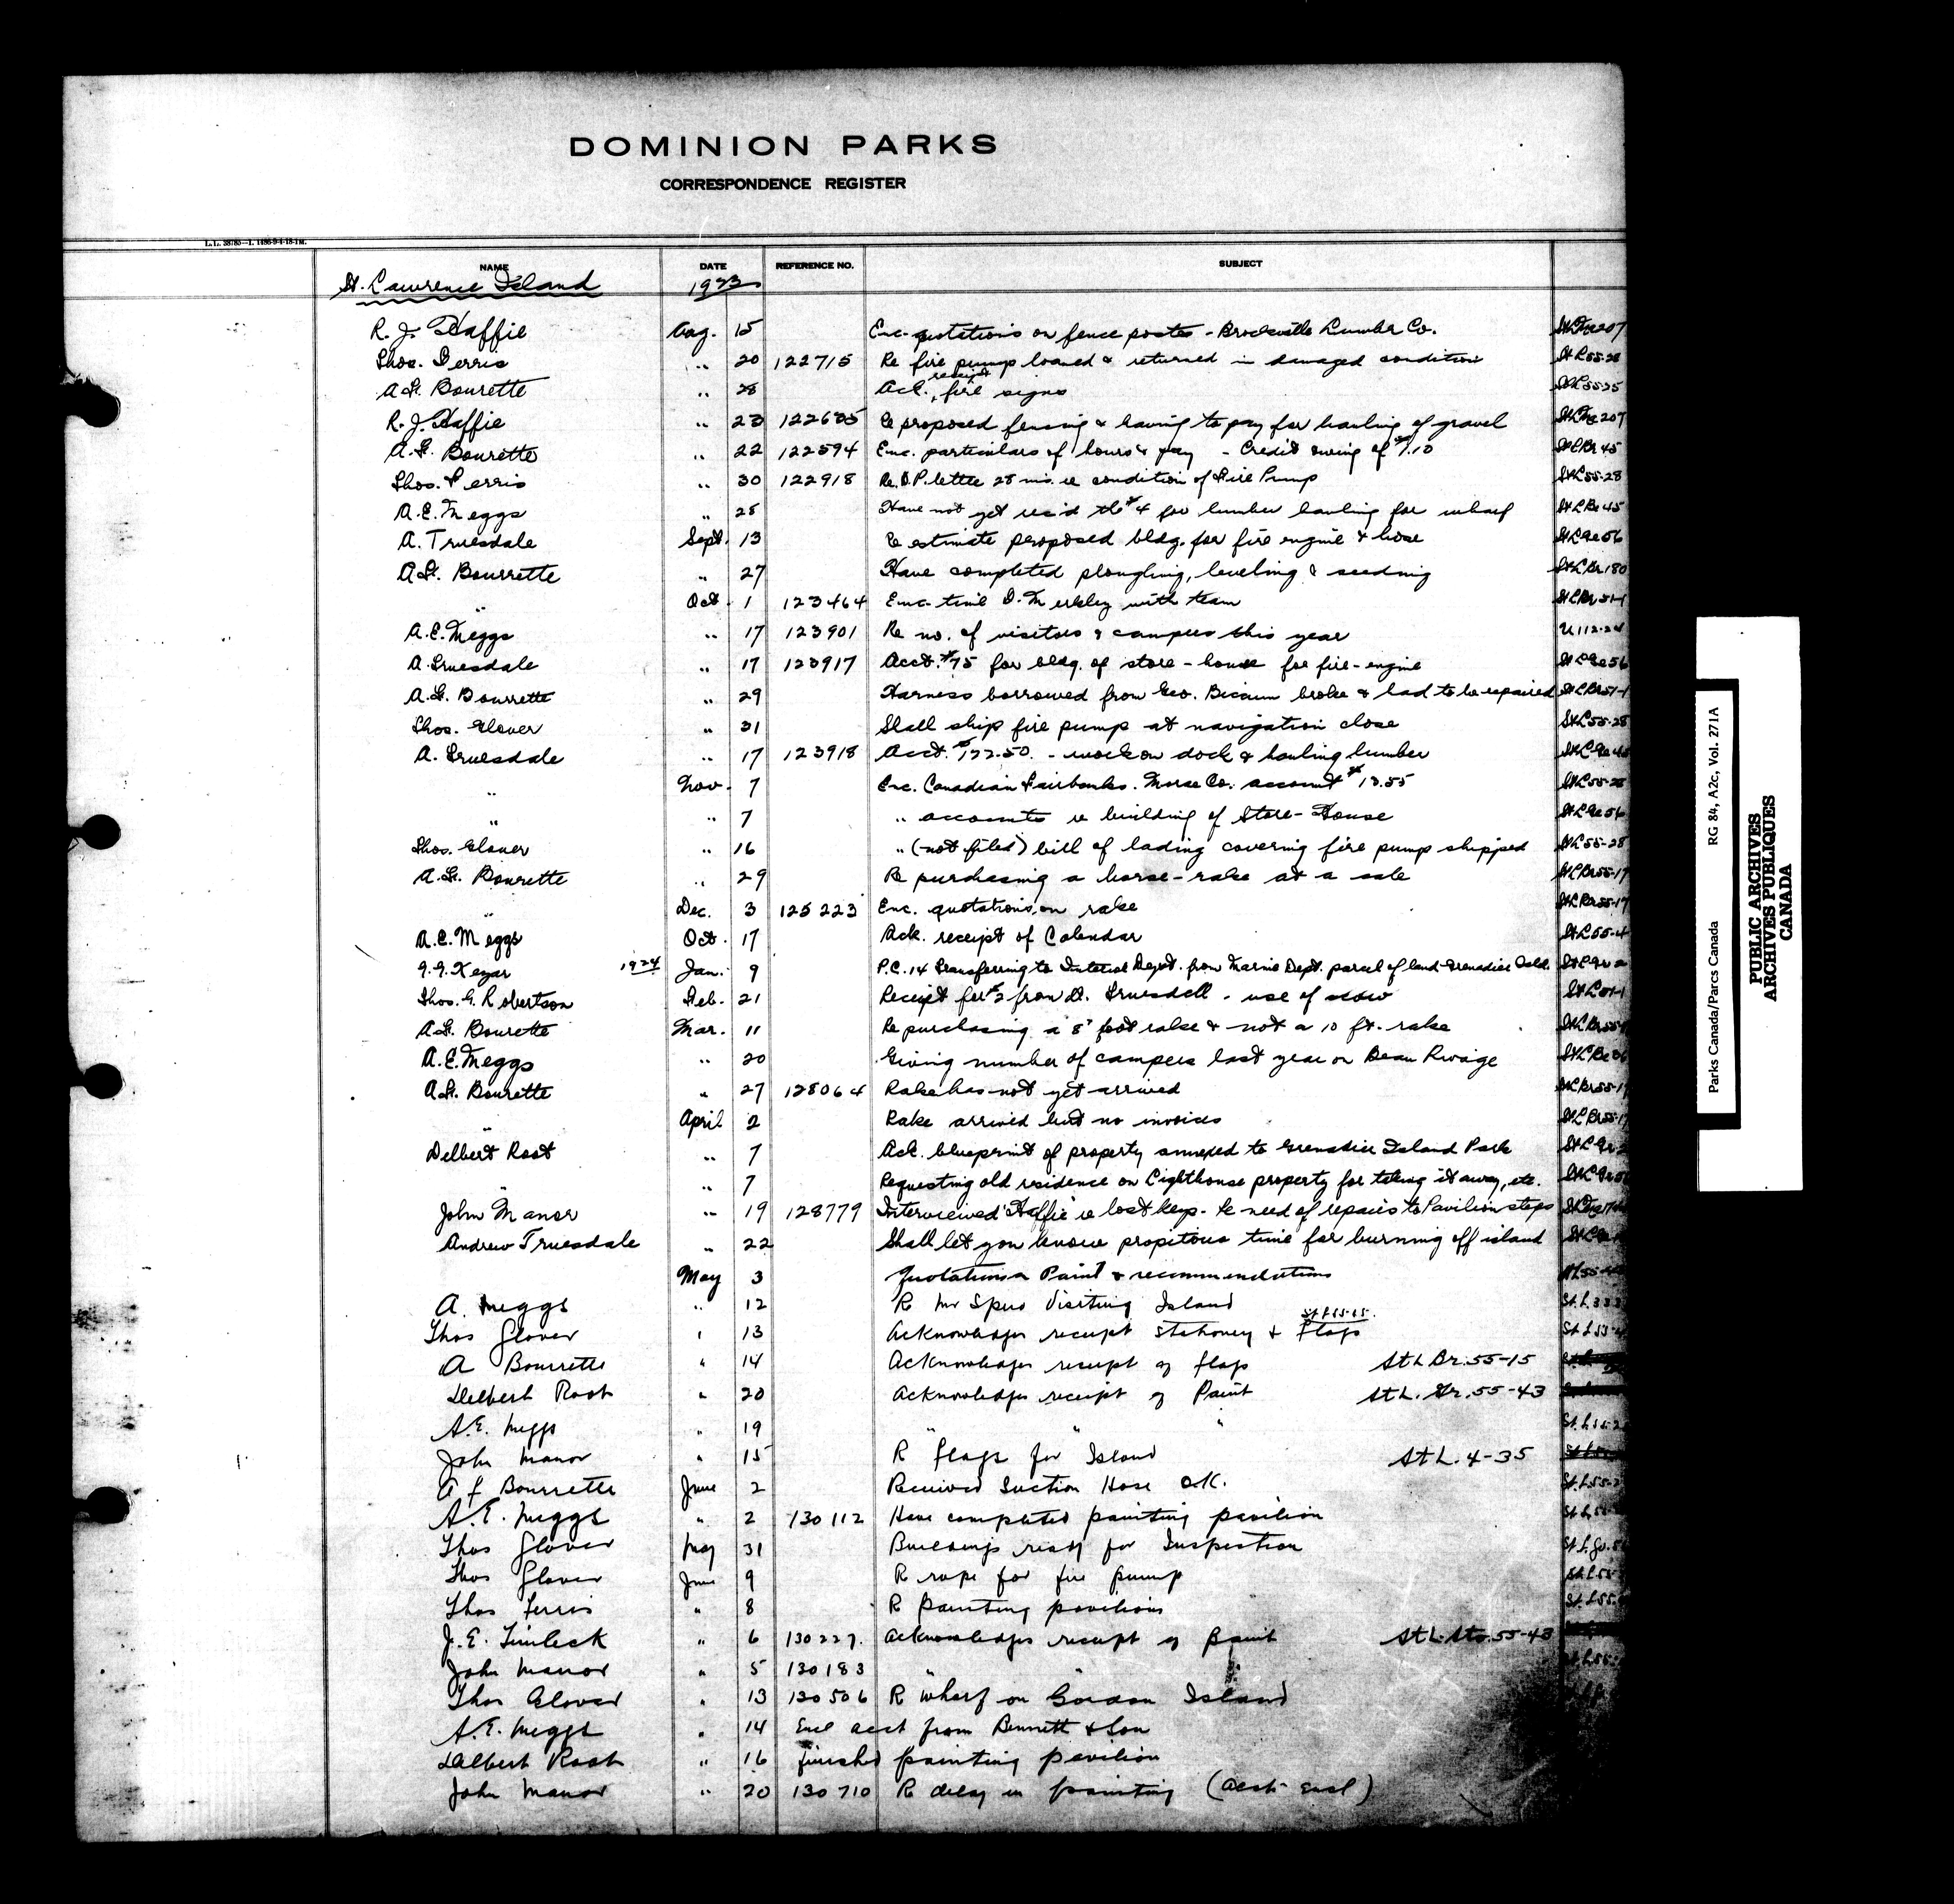 DOMINION PARKS
CORRESPONDENCE REGISTER
L.L. 38785—1. 1486-9-4-18-1M.
NAME DATE REFERENCE NO. SUBJECT
St. Lawrence Island 1923
R. J. Haffie Aug. 15 Enc. quotations on fence posts - Brockville Lumber Co. 207
Thos. Ferris " 20 122715 Re fire pump loaned & returned in damaged condition St L 55-28
A. St. Bourette " 28 Ack. receipt, fire signs St L 55-25
R. J. Haffie " 23 122685 Re proposed fencing & having to pay for hauling of gravel 207
A. St. Bourette " 22 122594 Enc. particulars of hours & pay - Credit owing of $7.10 St L Br 45
Thos. Ferris " 30 122918 Re. D.P. letter 28 ins. re condition of Fire Pump St L 55-28
A. E. Meggs " 28 Have not yet rec'd the $4 for lumber hauling for wharf St L Be 45
A. Truesdale Sept. 13 Re estimate proposed bldg. for fire engine & hose St L Ge 56
A. St. Bourrette " 27 Have completed ploughing, leveling & seeding St L Br 180
" Oct. 1 123464 Enc. time D. Merkley with team St L Br 51-1
A. E. Meggs " 17 123901 Re no. of visitors & campers this year U 112-24
A. Truesdale " 17 123917 Acct. $75 for bldg. of store-house for fire-engine St L Ge 56
A. St. Bourrette " 29 Harness borrowed from Geo. broke & had to be repaired St L Br 51-1
Thos. Glover " 31 Shall ship fire pump at navigation close St L 55-28
A. Truesdale " 17 123918 Acct. $122.50. - work on dock & hauling lumber St L Ge 45
" Nov. 7 Enc. Canadian Fairbanks. Morse Co. account $13.55 St L 55-28
" " 7 " accounts re building of Store-House St L Ge 56
Thos. Glover " 16 " (not filed) bill of lading covering fire pump shipped St L 55-28
A. St. Bourette " 29 Re purchasing a horse-rake at a sale St L Br 55-17
" Dec. 3 125223 Enc. quotations, on rake St L Br 55-17
A. E. Meggs Oct. 17 Ack. receipt of Calendar St L 55-4
G. G. Keyar 1924 Jan. 9 P.C. 14 Transferring to Interior Dept. from Marine Dept. parcel of land - Grenadier Isld. St L Gr 2
Thos. G. Robertson Feb. 21 Receipt for $2 from A. Truesdell - use of scow St L 51-1
A. St. Bourette Mar. 11 Re purchasing a 8' foot rake & not a 10 ft. rake St L Br 55-
A. E. Meggs " 20 Giving number of campers last year on Beau Rivage St L Be 36
A. St. Bourette " 27 128064 Rake has not yet arrived St L Br 55-17
" April 2 Rake arrived but no invoices St L Br 55-17
Delbert Root " 7 Ack. blueprint of property annexed to Grenadier Island Park St L Gr 2
" " 7 Requesting old residence on Lighthouse property for taking it away, etc. St L Gr
John Manor " 19 128779 Interviewed Haffie re lost keys. Re need of repairs to Pavilion steps
Andrew Truesdale " 22 Shall let you know propitous time for burning off island
May 3 Quotations Paint & recommendations
A. Meggs " 12 R Mr Spero Visiting Island St. L 333
Thos Glover " 13 Acknowledges receipt stationey & Flags St L 55-15.
A Bourrette " 14 Acknowledges receipt of flags St L Br. 55-15
Delbert Root " 20 Acknowledges receipt of Paint St L. Gr. 55-43
A. E. Meggs " 19 " " "
John Manor " 15 R flags for Island St L. 4-35
A f Bourrette June 2 Received Suction Hose O.K.
A. E. Meggs " 2 130112 Have completed painting pavilion
Thos Glover May 31 Buildings ready for Inspection
Thos Glover June 9 R rope for fire pump
Thos Ferris " 8 R painting pavilions
J. E. Timleck " 6 130227. Acknowledges receipt of paint St L. Sto. 55-43
John Manor " 5 130183 " "
Thos Glover " 13 130506 R wharf on Gordon Island
A. E. Meggs " 14 Encl acct from Bennett & Son
Delbert Root " 16 finished painting pavilion
John Manor " 20 130710 R delay in painting (acct Encl)
Parks Canada/Parcs Canada RG 84, A2c, Vol. 271A
PUBLIC ARCHIVES
ARCHIVES PUBLIQUES
CANADA